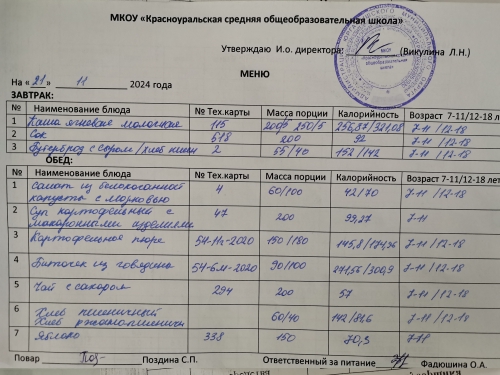 МКОУ «Красноуральская средняя общеобразовательная школа»
Утверждаю И.о. директора: (Викулина Л.Н.)
МЕНЮ
На « 21 » 11 2024 года
ЗАВТРАК:
№ Наименование блюда № Тех.карты Масса порции Калорийность Возраст 7-11/12-18 лет
1 Каша ячневая молочная 115 250/5 256,87/321,08 7-11 /12-18
2 Сок 518 200 92 7-11 /12-18
3 Бутерброд с сыром/хлеб пшен 2 55/40 152/142 7-11 /12-18
ОБЕД:
№ Наименование блюда № Тех.карты Масса порции Калорийность Возраст 7-11/12-18 лет
1 Салат из белокочанной капусты с морковью 4 60/100 42/70 7-11 /12-18
2 Суп картофельный с макаронными изделиями 47 200 99,27 7-11
3 Картофельное пюре 54-11г-2020 150/180 145,8/174,96 7-11 /12-18
4 Биточек из говядина 54-6м-2020 90/100 7-11 /12-18
5 Чай с сахаром 294 200 57 7-11 /12-18
6 Хлеб пшеничный
Хлеб ржано-пшеничн 60/40 7-11 /12-18
7 Яблоко 338 150 70,3 7-11
Повар Поздина С.П. Ответственный за питание Фадюшина О.А.